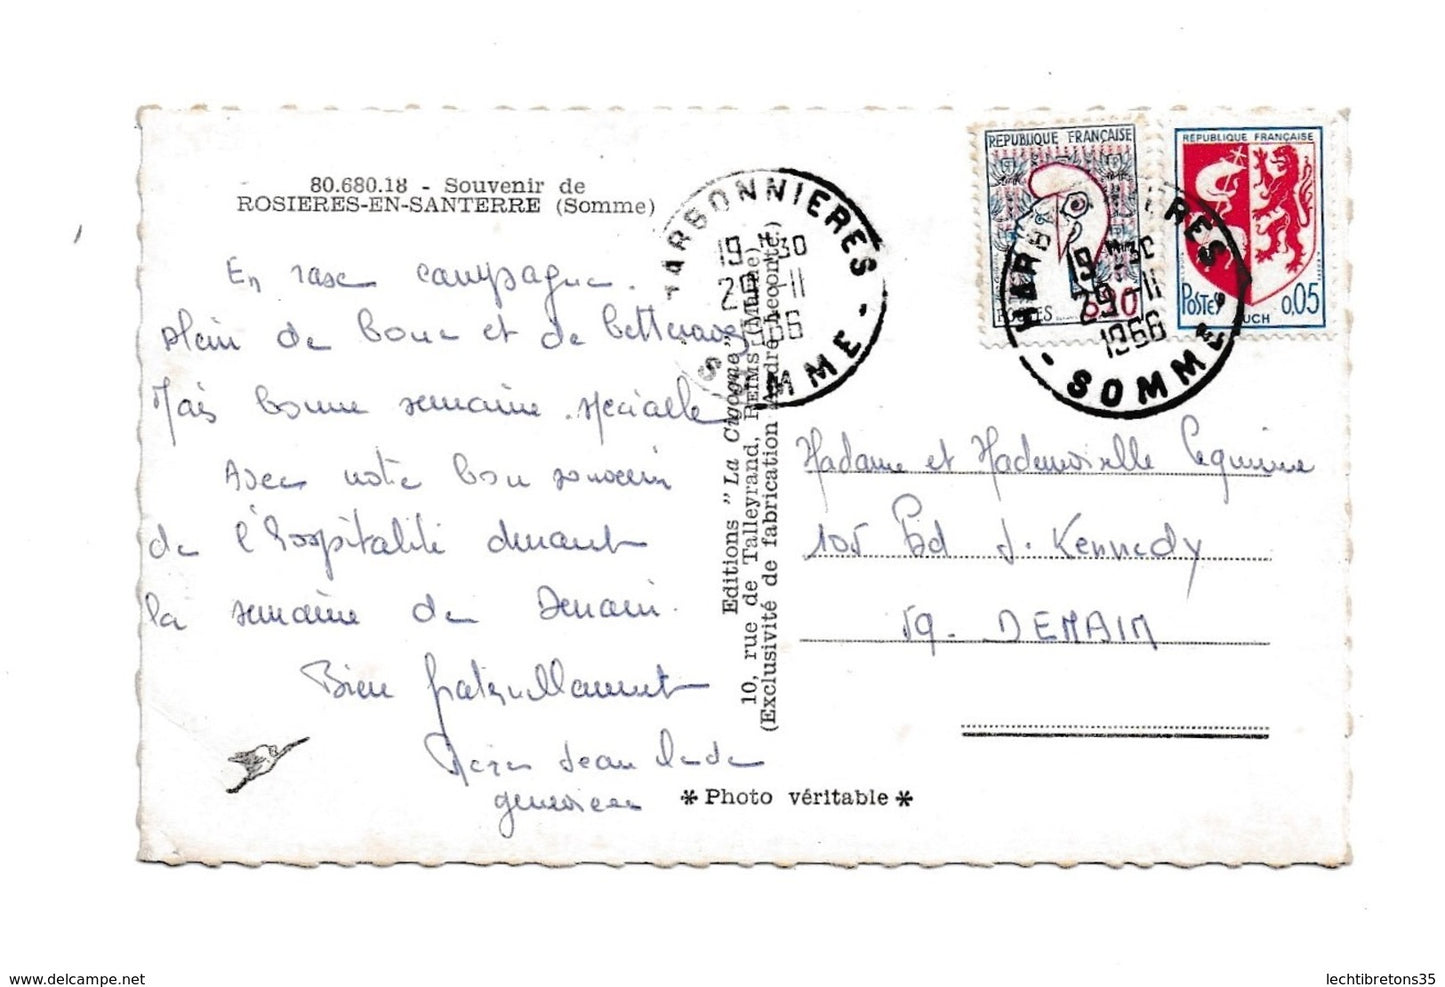 80.680.18 - Souvenir de
ROSIERES-EN-SANTERRE (Somme)
En rase campagne.
plein de boue et de betteraves
Mais bonne semaine spéciale
Avec notre bon souvenir
de l'hospitalité durant
la semaine de Denain.
Bien fraternellement
Jean Claude
geneviève
Editions "La Cigogne"
10, rue de Talleyrand, REIMS (Marne)
(Exclusivité de fabrication André Leconte)
* Photo véritable *
HARBONNIERES
19 H 30
29-11
1966
SOMME
REPUBLIQUE FRANÇAISE
POSTES 0,30
REPUBLIQUE FRANÇAISE
POSTES 0,05
AUCH
HARBONNIERES
19 H 30
29-11
1966
SOMME
Madame et Mademoiselle
105 Bd J. Kennedy
59. DENAIN
www.delcampe.net
lechtibretons35